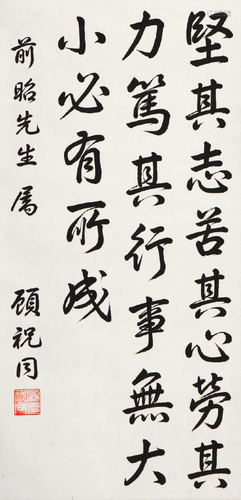 堅其志苦其心勞其
力篤其行事無大
小必有所成
前昭先生屬
顧祝同